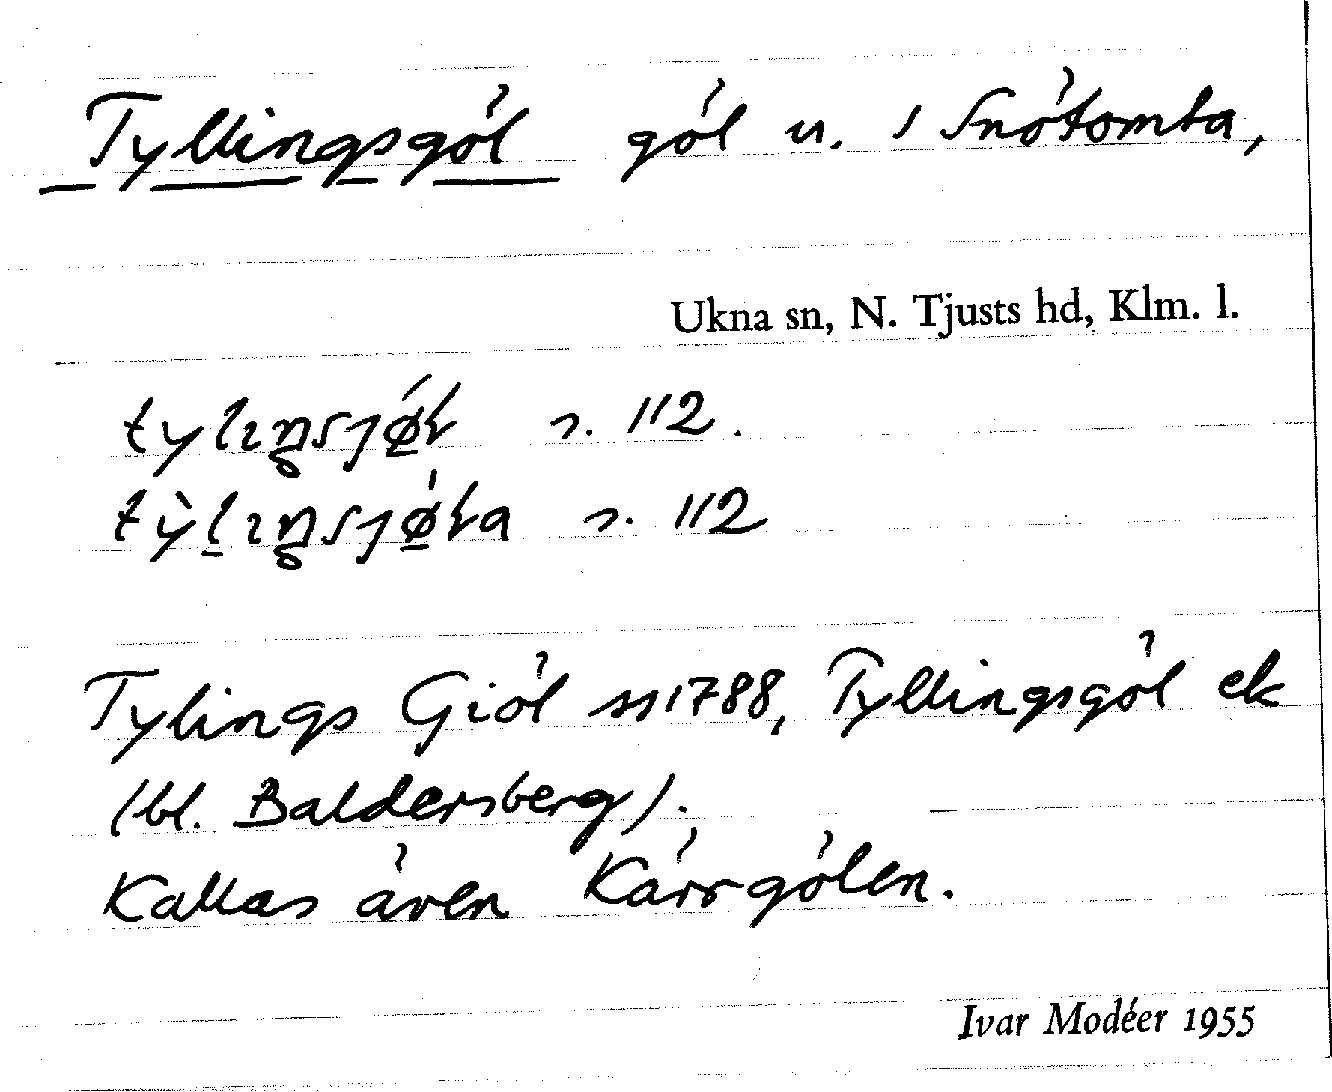 Tyllingsgöl göl u. / Snötomta,
Ukna sn, N. Tjusts hd, Klm. l.
s. 112.
s. 112
Tylings Giöl ss 1788, Tyllingsgöl ek
(bl. Baldersberg).
Kallas även Kärrgölen.
Ivar Modéer 1955